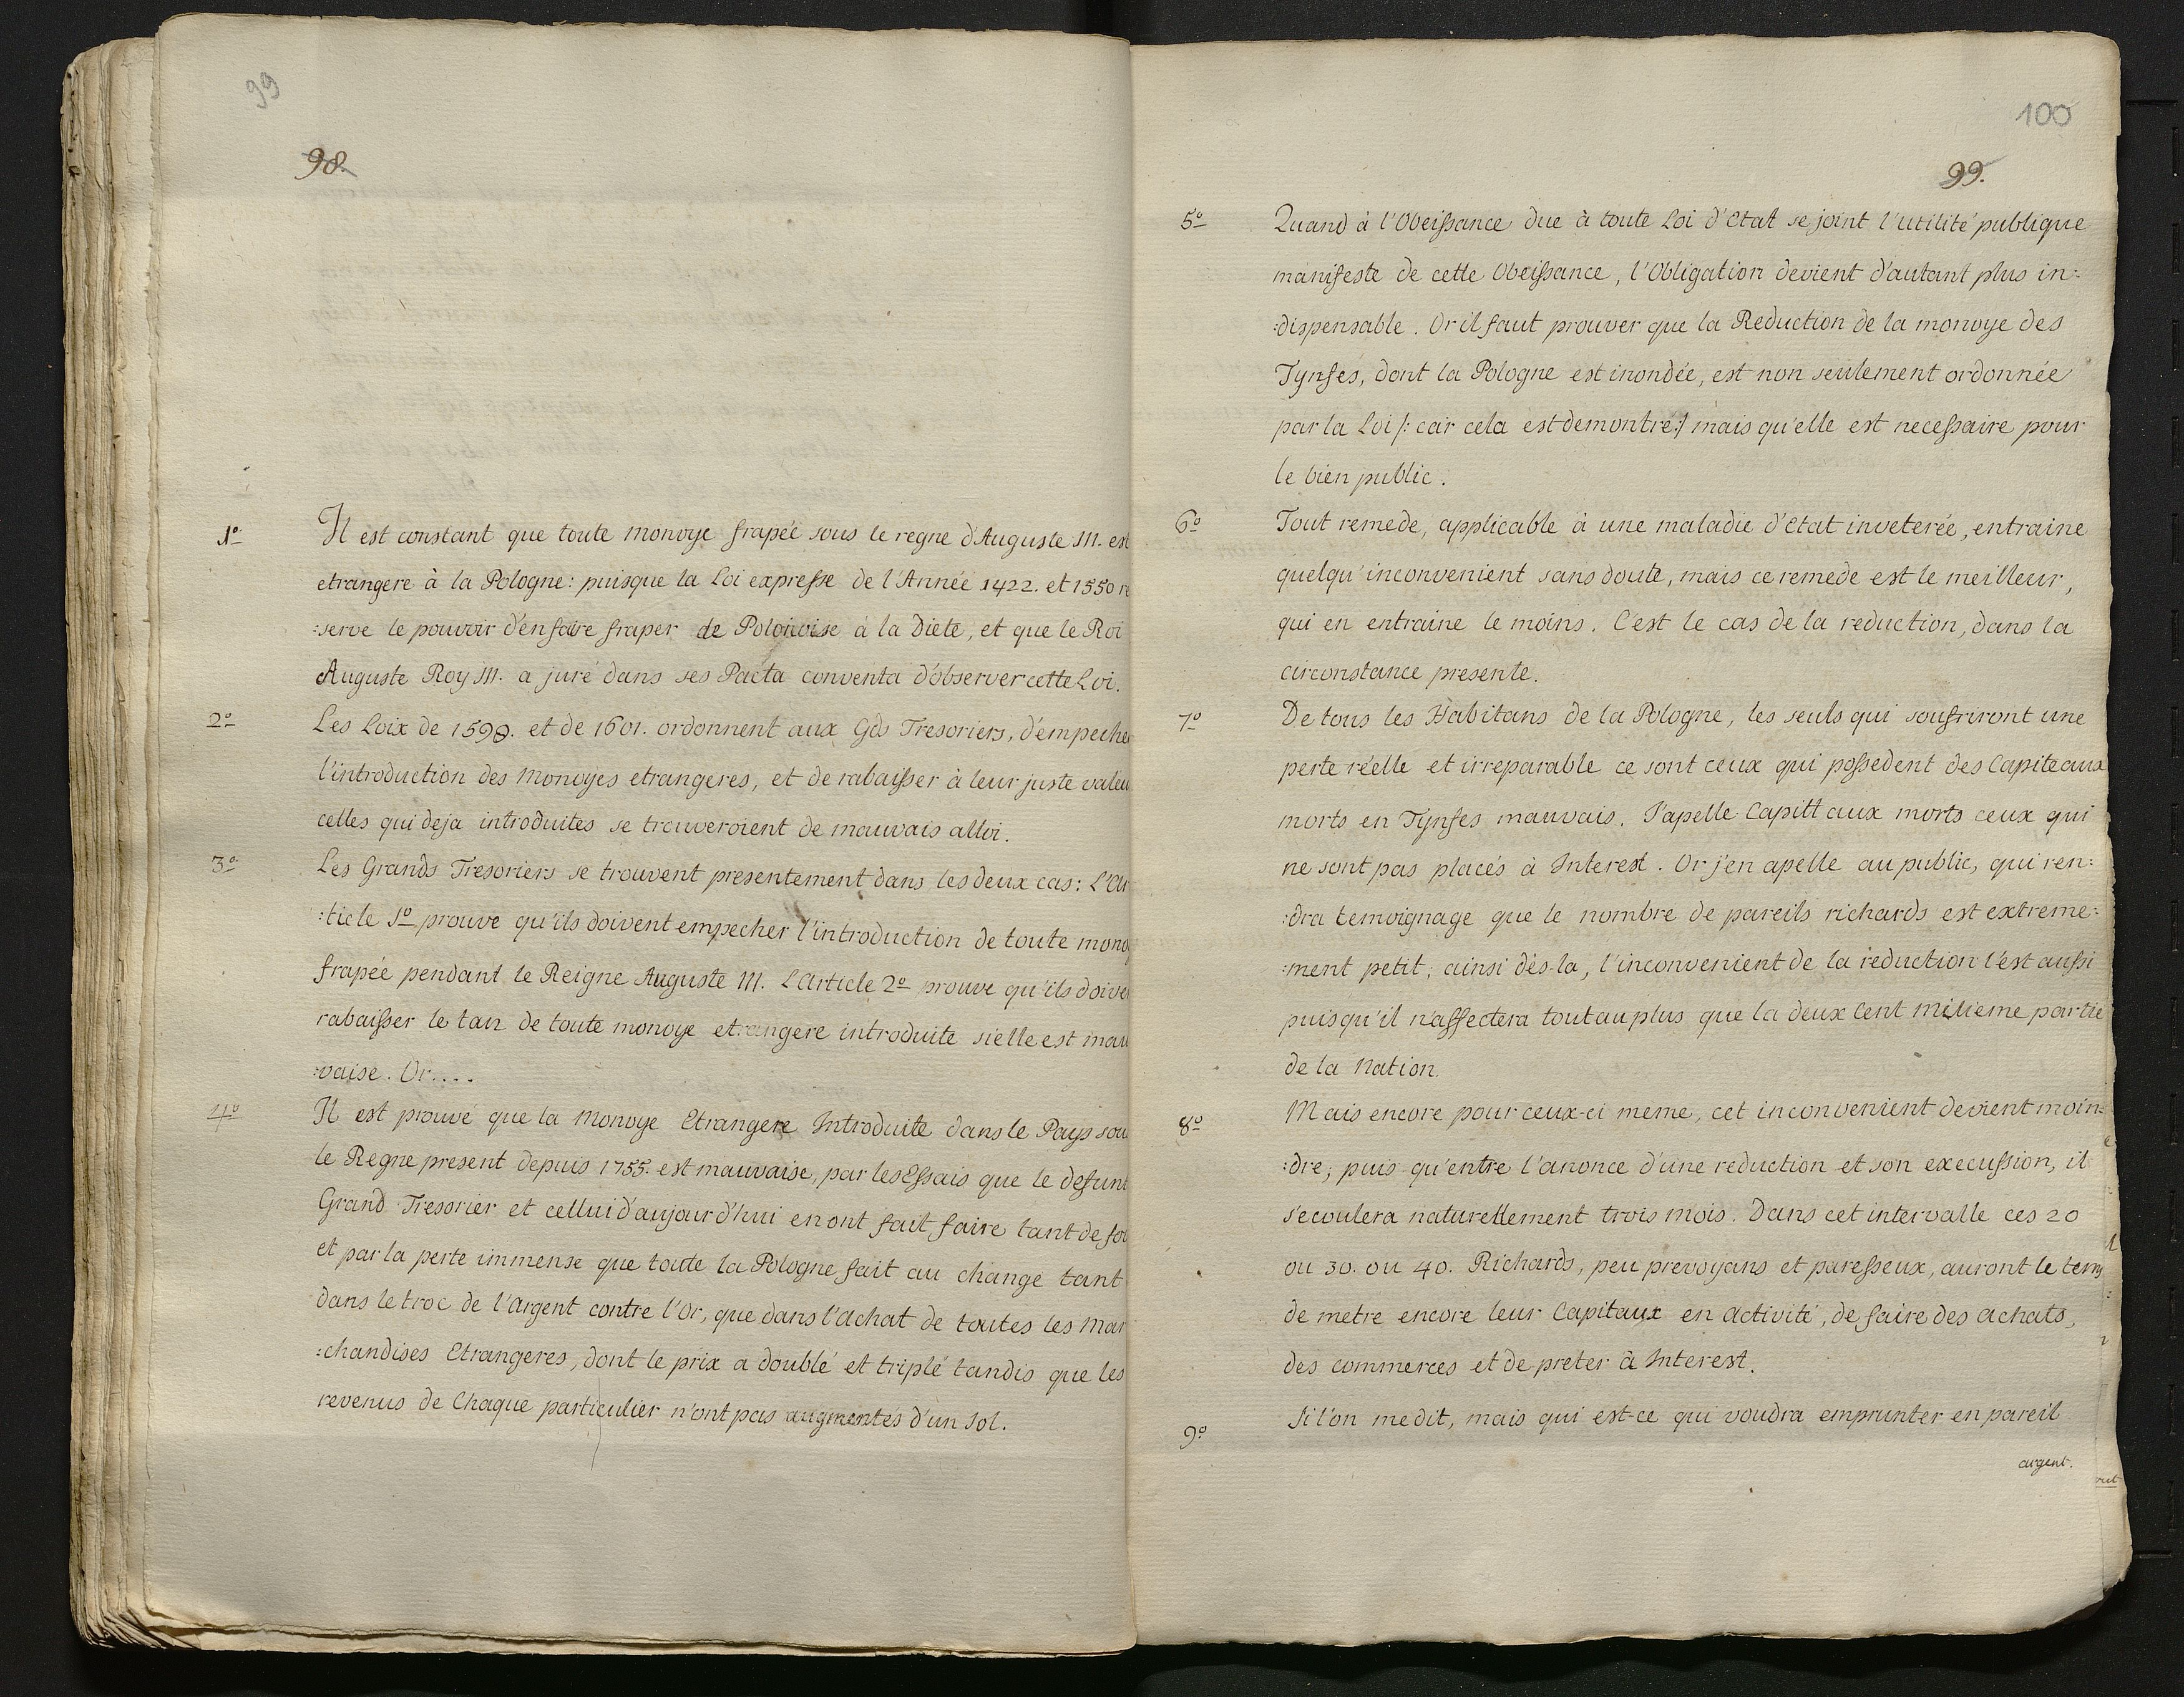 99
98.
1º Il est constant que toute monoye frapée sous le regne d'Auguste III. est
etrangere à la Pologne: puisque la Loi expresse de l'Année 1422. et 1550 re
:serve le pouvoir d'en faire fraper de Polonoise à la Diete, et que le Roi
Auguste Roy III. a juré dans ses Pacta conventa d'observer cette Loi.
2º Les Loix de 1598. et de 1601. ordonnent aux Gds Tresoriers, d'empecher
l'introduction des Monoyes etrangeres, et de rabaisser à leur juste valeu
celles qui deja introduites se trouveroient de mauvais alloi.
3º Les Grands Tresoriers se trouvent presentement dans les deux cas: L'Ar
:ticle 1º prouve qu'ils doivent empecher l'introduction de toute monoy
frapée pendant le Reigne Auguste III. L'Article 2º prouve qu'ils doive
rabaisser le taux de toute monoye etrangere introduite si elle est mau
:vaise. Or....
4º Il est prouvé que la Monoye Etrangere Introduite dans le Pays sou
le Regne present depuis 1755. est mauvaise, par les Essais que le defunt
Grand Tresorier et cellui d'aujourd'hui en ont fait faire tant de foi
et par la perte immense que toute la Pologne fait au change tant
dans le troc de l'Argent contre l'Or, que dans l'Achat de toutes les Mar
:chandises Etrangeres, dont le prix a doublé et triplé tandis que les
revenus de Chaque particulier n'ont pas augmentés d'un Sol.
100
99.
5º Quand à l'Obeissance due à toute Loi d'Etat se joint l'utilité publique
manifeste de cette Obeissance, l'Obligation devient d'autant plus in:
:dispensable. Or il faut prouver que la Reduction de la monoye des
Tynfes, dont la Pologne est inondée, est non seulement ordonnée
par la Loi /: car cela est demontré:/ mais qu'elle est necessaire pour
le bien public.
6º Tout remede, applicable à une maladie d'Etat inveterée, entraine
quelqu'inconvenient sans doute, mais ce remede est le meilleur,
qui en entraine le moins. C'est le cas de la reduction, dans la
circonstance presente.
7º De tous les Habitans de la Pologne, les seuls qui soufriront une
perte réelle et irreparable ce sont ceux qui possedent des Capiteaux
morts en Tynfes mauvais. J'apelle Capittaux morts ceux qui
ne sont pas placés à Interest. Or j'en apelle au public, qui ren:
:dra temoignage que le nombre de pareils richards est extreme:
:ment petit; ainsi dès-la, l'inconvenient de la reduction l'est aussi
puisqu'il n'affectera tout au plus que la deux Cent Milieme partie
de la Nation.
8º Mais encore pour ceux-ci meme, cet inconvenient devient moin:
:dre; puis qu'entre l'anonce d'une reduction et son execussion, il
s'ecoulera naturellement trois mois. Dans cet intervalle ces 20
ou 30. ou 40. Richards, peu prevoyans et paresseux, auront le tems
de metre encore leur Capitaux en Activité, de faire des Achats,
des commerces et de preter à Interest.
9º Si l'on me dit, mais qui est-ce qui voudra emprunter en pareil
argent.